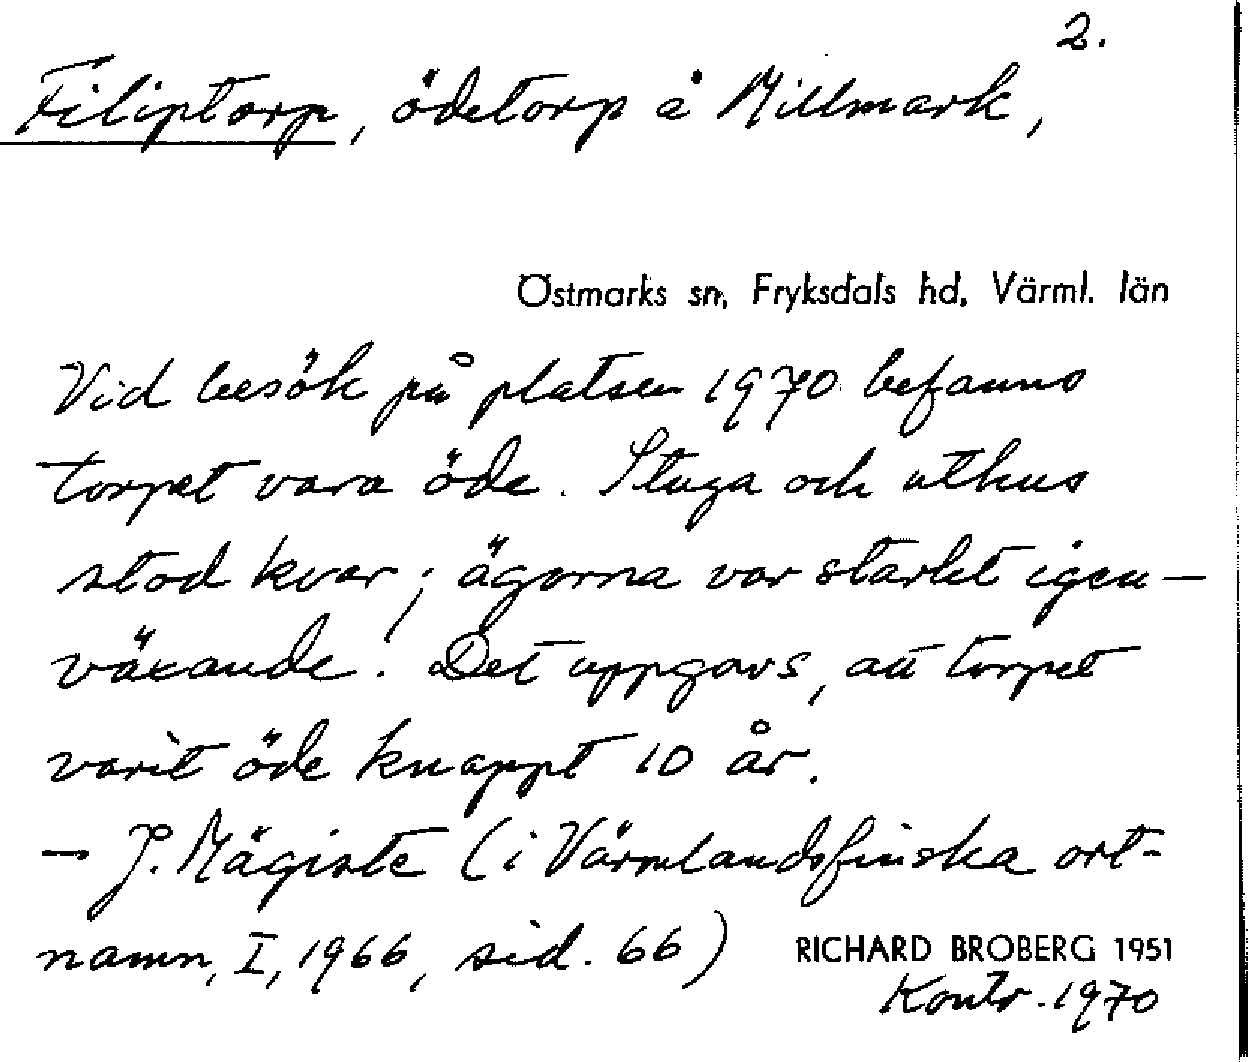 2.
Filiptorp, ödetorp å Millmark,
Östmarks sn, Fryksdals hd, Värml. län
Vid besök på platsen 1970 befanns
torpet vara öde. Stuga och uthus
stod kvar; ägorna var starkt igen-
växande. Det uppgavs, att torpet
varit öde knappt 10 år.
- J. Mägiste (i Värmlandsfinska ort-
namn, I, 1966, sid. 66)
RICHARD BROBERG 1951
Kontr. 1970